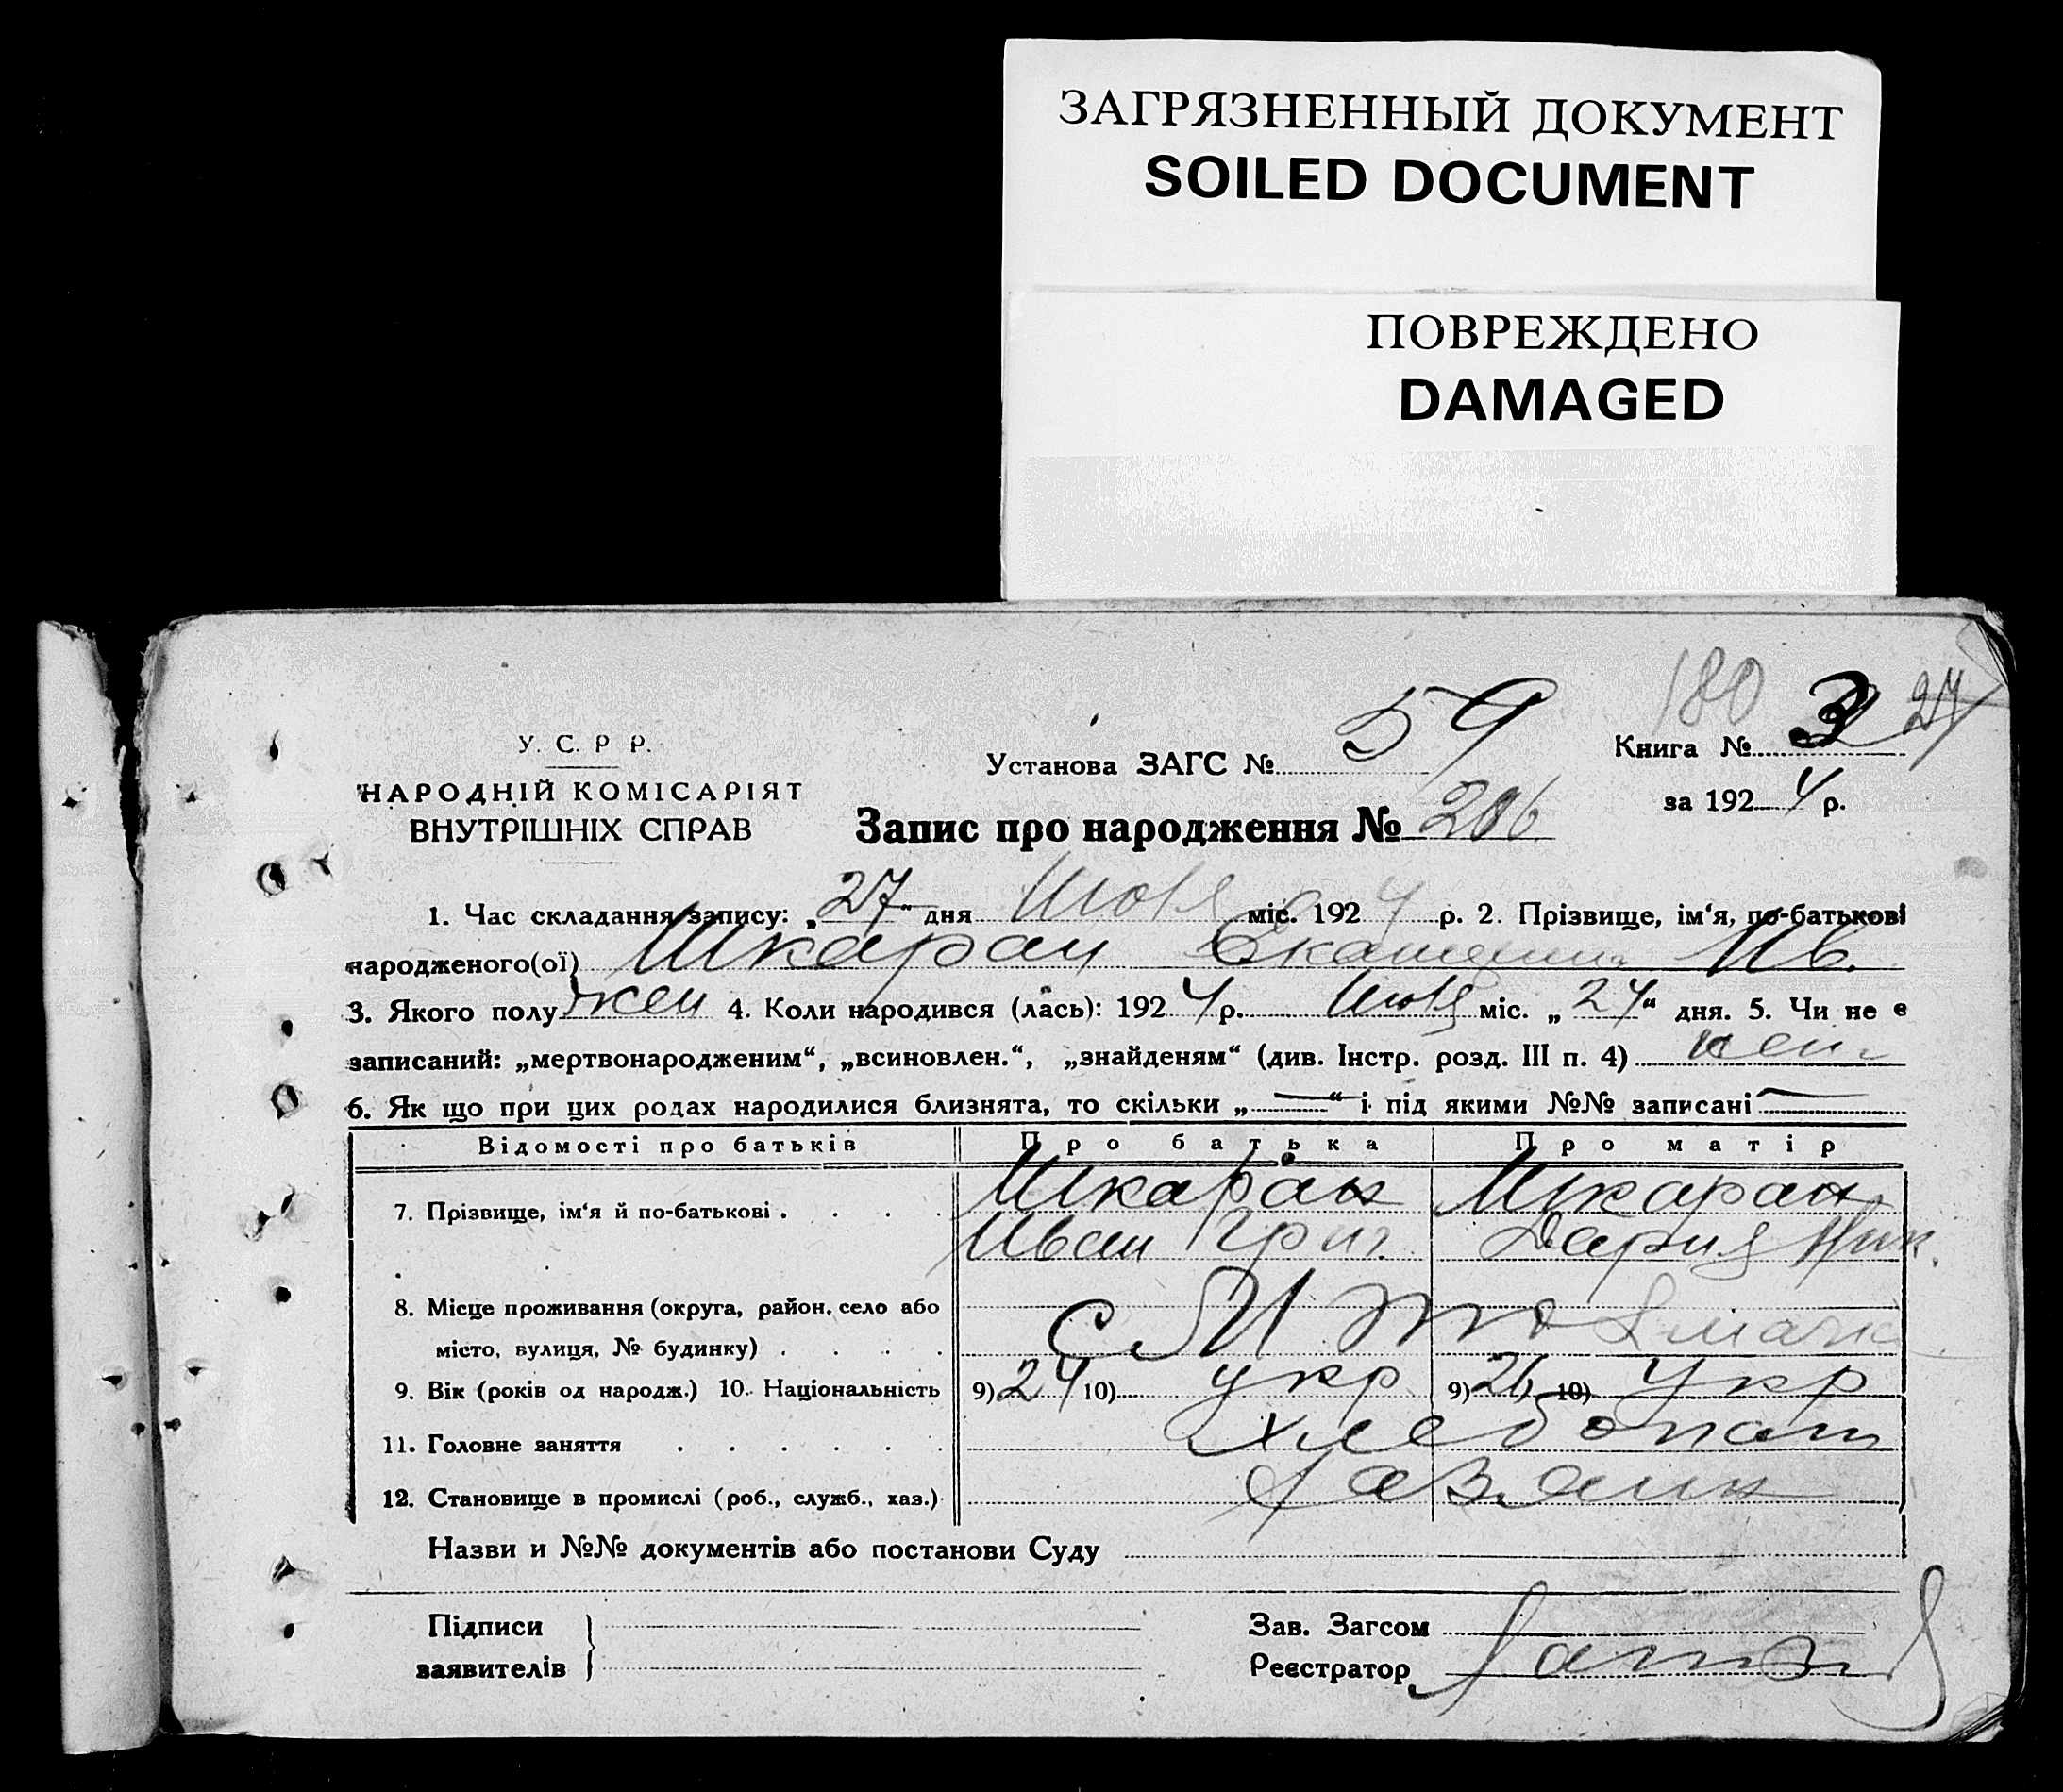 ЗАГРЯЗНЕННЫЙ ДОКУМЕНТ
SOILED DOCUMENT
ПОВРЕЖДЕНО
DAMAGED
180 3 27
У. С. Р Р.
Установа ЗАГС № 59 Книга №
НАРОДНІЙ КОМІСАРІЯТ
за 1924 р.
ВНУТРІШНІХ СПРАВ
Запис про народження № 206
1. Час складання запису: „27“ дня Июля міс. 1924 р. 2. Прізвище, ім‘я, по-батькові
народженого(ої) Шкаран Екатерина Ив.
3. Якого полу жен 4. Коли народився (лась): 1924 р. Июля міс. „24“ дня. 5. Чи не є
записаний: „мертвонародженим“, „всиновлен.“, „знайденям“ (див. Інстр. розд. III п. 4) нет
6. Як що при цих родах народилися близнята, то скільки „—“ і під якими №№ записані —
Відомості про батьків Про батька Про матір
7. Прізвище, ім‘я й по-батькові . . . . Шкаран Шкаран
Иван Григ. Дария Ник.
8. Місце проживання (округа, район, село або
місто, вулиця, № будинку) . . . . с
9. Вік (років од народж.) 10. Національність 9) 24 10) укр 9) 26 10) укр
11. Головне заняття . . . . . . хлебопаш
12. Становище в промислі (роб., служб., хаз.)
Назви и №№ документів або постанови Суду
Підписи
заявителів
Зав. Загсом
Реєстратор